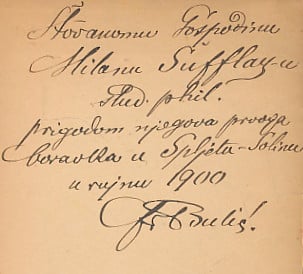 Štovanomu Gospodinu
Milanu Šufflay-u
stud. phil.
prigodom njegova prvoga
boravka u Spljetu-Solinu
u rujnu 1900
Fr Bulić!